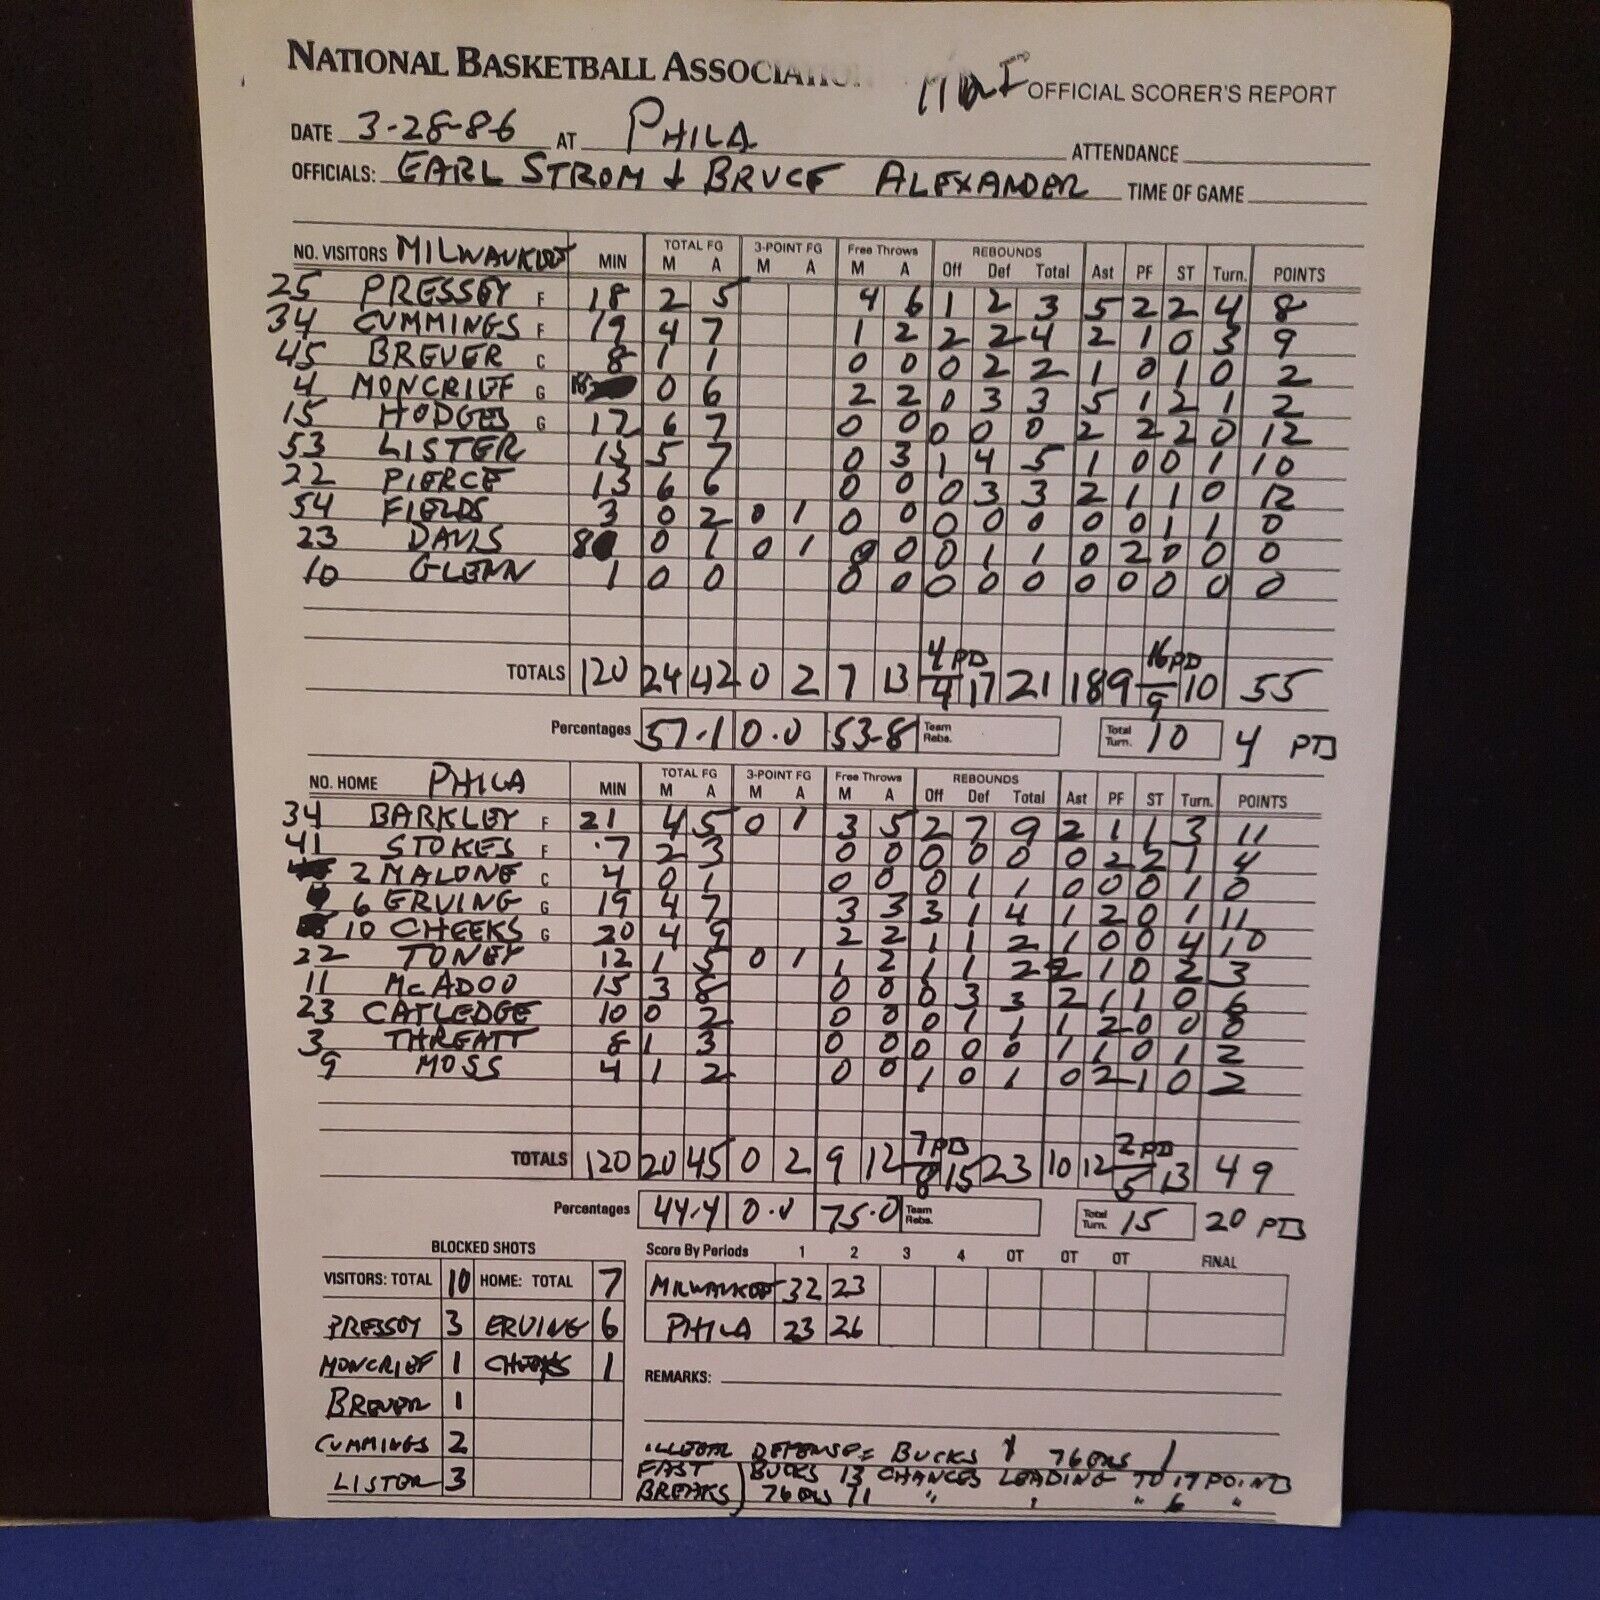 NATIONAL BASKETBALL ASSOCIATION OFFICIAL SCORER'S REPORT
DATE 3-28-86 AT PHILA ATTENDANCE
OFFICIALS: EARL STROM + BRUCE ALEXANDER TIME OF GAME
TOTAL FG 3-POINT FG Free Throws REBOUNDS
NO. VISITORS MILWAUKEE MIN M A M A M A Off Def Total Ast PF ST Turn. POINTS
25 PRESSEY F 18 2 5 4 6 1 2 3 5 2 2 4 8
34 CUMMINGS F 19 4 7 1 2 2 2 4 2 1 0 3 9
45 BREUER C 8 1 1 0 0 0 2 2 1 0 1 0 2
4 MONCRIEF G 18 0 6 2 2 0 3 3 5 1 2 1 2
15 HODGES G 17 6 7 0 0 0 0 0 2 2 2 0 12
53 LISTER 15 5 7 0 3 1 4 5 1 0 0 1 10
22 PIERCE 13 6 6 0 0 0 3 3 2 1 1 0 12
54 FIELDS 3 0 2 0 1 0 0 0 0 0 0 0 1 1 0
23 DAVIS 8 0 1 0 1 0 0 0 1 1 0 2 0 0 0
10 GLENN 1 0 0 0 0 0 0 0 0 0 0 0 0
4 PTS 16 PTS
TOTALS 120 24 42 0 2 7 13 4 17 21 18 9 9 10 55
Percentages 57.1 0.0 53.8 Team Rebs. Total Turn. 10 4 PTS
TOTAL FG 3-POINT FG Free Throws REBOUNDS
NO. HOME PHILA MIN M A M A M A Off Def Total Ast PF ST Turn. POINTS
34 BARKLEY F 21 4 5 0 1 3 5 2 7 9 2 1 1 3 11
41 STOKES F 7 2 3 0 0 0 0 0 0 2 2 1 4
2 MALONE C 4 0 1 0 0 0 1 1 0 0 0 1 0
6 ERVING G 19 4 7 3 3 3 1 4 1 2 0 1 11
10 CHEEKS G 20 4 9 2 2 1 1 2 1 0 0 4 10
22 TONEY 12 1 5 0 1 1 2 1 1 2 2 1 0 2 3
11 McADOO 15 3 8 0 0 0 3 3 2 1 1 0 6
23 CATLEDGE 10 0 2 0 0 0 1 1 1 2 0 0 0
3 THREATT 8 1 3 0 0 0 0 0 1 1 0 1 2
9 MOSS 4 1 2 0 0 1 0 1 0 2 1 0 2
7 PTS 2 PTS
TOTALS 120 20 45 0 2 9 12 8 15 23 10 12 5 13 49
Percentages 44.4 0.0 75.0 Team Rebs. Total Turn. 15 20 PTS
BLOCKED SHOTS Score By Periods 1 2 3 4 OT OT OT FINAL
VISITORS: TOTAL 10 HOME: TOTAL 7 MILWAUKEE 32 23
PRESSEY 3 ERVING 6 PHILA 23 26
MONCRIEF 1 CHEEKS 1 REMARKS:
BREUER 1
CUMMINGS 2 ILLEGAL DEFENSE = BUCKS 1 76ERS 1
LISTER 3 FAST BREAKS) BUCKS 13 CHANCES LEADING TO 17 POINTS
76ERS 11 " " " 6 "